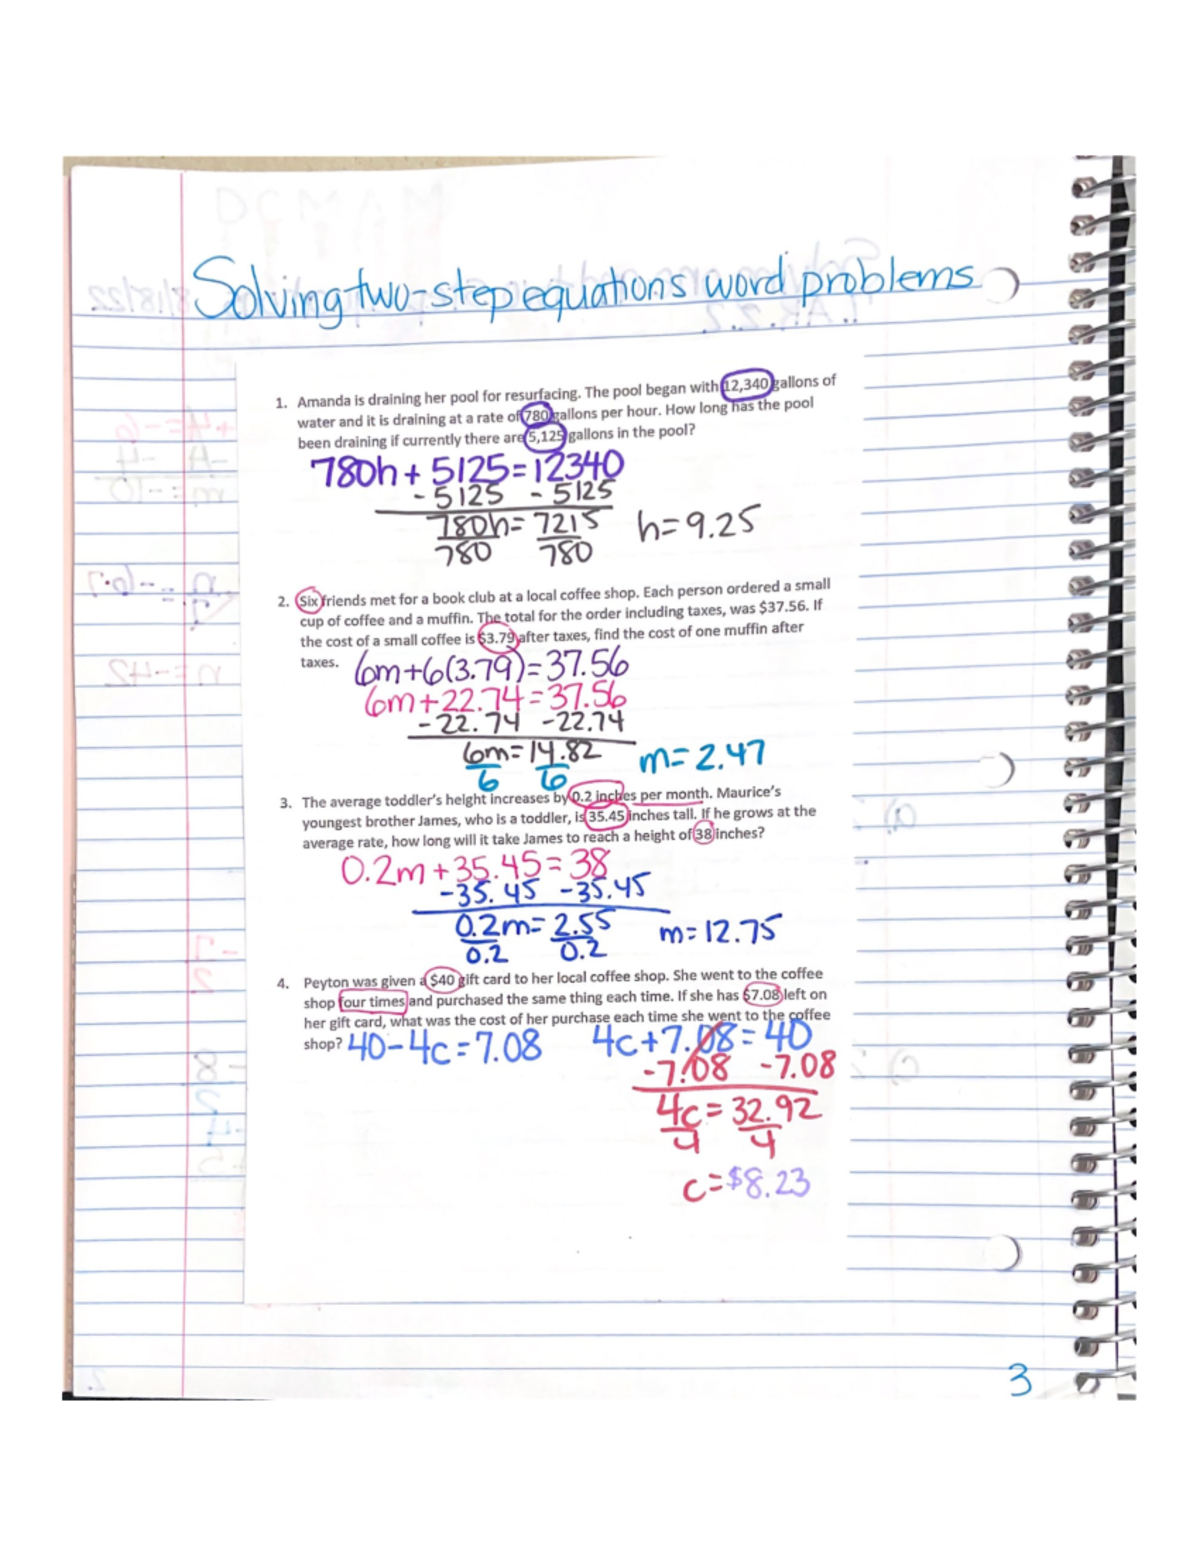 Solving two-step equations word problems
1. Amanda is draining her pool for resurfacing. The pool began with 12,340 gallons of
water and it is draining at a rate of 780 gallons per hour. How long has the pool
been draining if currently there are 5,125 gallons in the pool?
780h + 5125 = 12340
- 5125 - 5125
780h = 7215
780 780
h = 9.25
2. Six friends met for a book club at a local coffee shop. Each person ordered a small
cup of coffee and a muffin. The total for the order including taxes, was $37.56. If
the cost of a small coffee is $3.79 after taxes, find the cost of one muffin after
taxes.
6m+6(3.79)=37.56
6m+22.74=37.56
-22.74 -22.74
6m=14.82
6 6
m=2.47
3. The average toddler's height increases by 0.2 inches per month. Maurice's
youngest brother James, who is a toddler, is 35.45 inches tall. If he grows at the
average rate, how long will it take James to reach a height of 38 inches?
0.2m+35.45=38
-35.45 -35.45
0.2m=2.55
0.2 0.2
m=12.75
4. Peyton was given a $40 gift card to her local coffee shop. She went to the coffee
shop four times and purchased the same thing each time. If she has $7.08 left on
her gift card, what was the cost of her purchase each time she went to the coffee
shop?
40-4c=7.08
4c+7.08=40
-7.08 -7.08
4c=32.92
4 4
c=$8.23
3